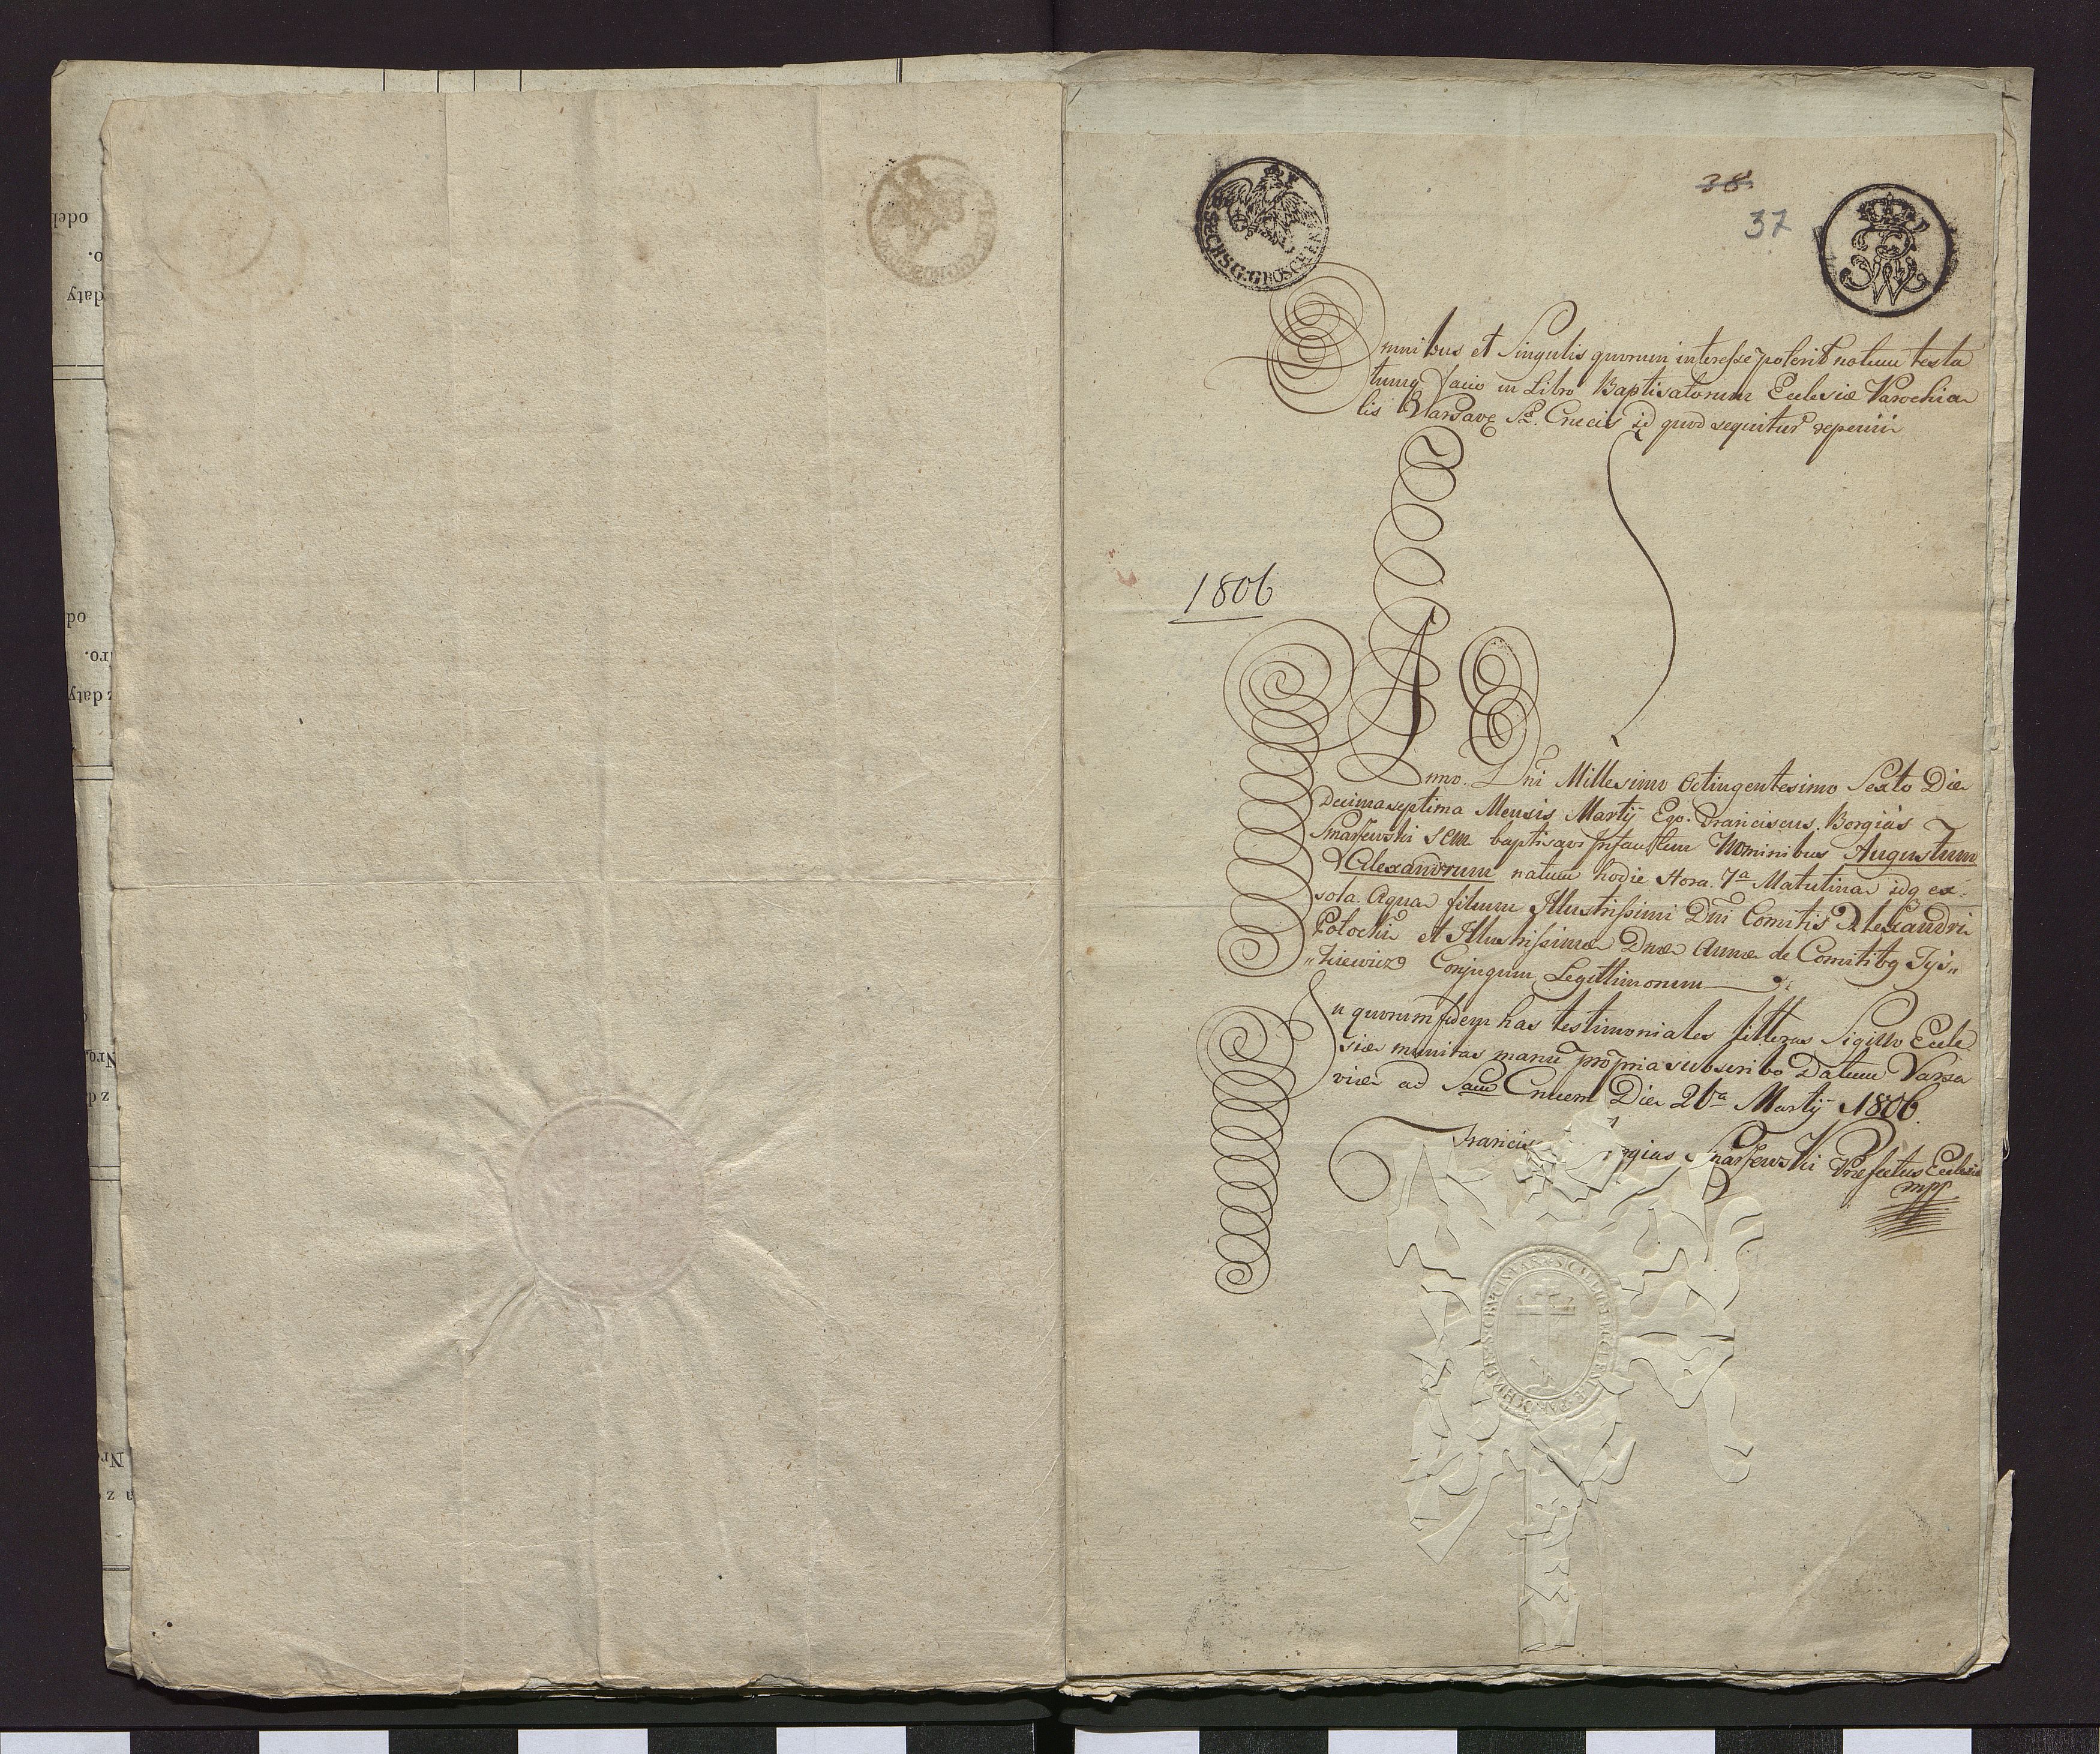 38.
37
SECHS G. GROSCHEN
FWR
Omnibus et Singulis quorum interesse poterit notum testa
tumq facio in Libro Baptisatorum Eclesiæ Parochia
lis Varsavę S. Crucis id quod sequitur reperiri
1806
Anno. Dni Millesimo Octingentesimo Sexto Die
Decima septima Mensis Martij Ego. Franciscus. Borgias
Smarsewski SCM baptisavi Infantem Nominibus Augustum
Alexandrum natum hodie Hora. 7a Matutina idq ex
sola. Aqua filium Illustrissimi Dni Comitis Alexandri
Potocki et Illustrissimæ Dnæ Annæ de Comitibq Tys„
„zkiewicz Conjugum Legittimorum
In quorum fidem has testimoniales litteras Sigillo Eccle
siæ munitas manu propria subscribo Datum Varsa
viæ ad Sam Crucem Die 26a Martij 1806.
Francis gias Smarsewski Præfectus Eclesiæ
mpp
odeb
daty
od
ro.
z daty
Nro.
z d
Nr
a z